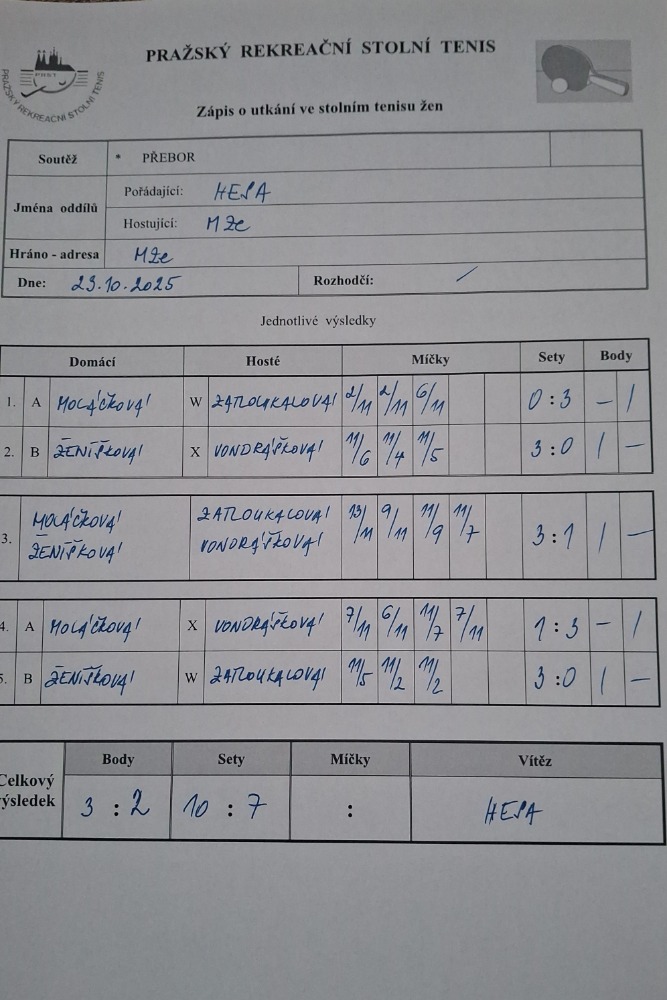 PRAŽSKÝ REKREAČNÍ STOLNÍ TENIS
PRST
PRAŽSKÝ REKREAČNÍ STOLNÍ TENIS
Zápis o utkání ve stolním tenisu žen
Soutěž * PŘEBOR
Jména oddílů
Pořádající: HESA
Hostující: MZe
Hráno - adresa MZe
Dne: 23.10.2025 Rozhodčí: /
Jednotlivé výsledky
Domácí Hosté Míčky Sety Body
1. A MOLÁČKOVÁ W ZATLOUKALOVÁ 2/11 2/11 6/11 0:3 – 1
2. B ŽENÍŠKOVÁ X VONDRÁŠKOVÁ 11/6 11/4 11/5 3:0 1 –
3. MOLÁČKOVÁ ZATLOUKALOVÁ 13/11 9/11 11/9 11/7 3:1 1 –
ŽENÍŠKOVÁ VONDRÁŠKOVÁ
4. A MOLÁČKOVÁ X VONDRÁŠKOVÁ 7/11 6/11 11/7 7/11 1:3 – 1
5. B ŽENÍŠKOVÁ W ZATLOUKALOVÁ 11/5 11/2 11/2 3:0 1 –
Body Sety Míčky Vítěz
Celkový výsledek 3 : 2 10 : 7 : HESA